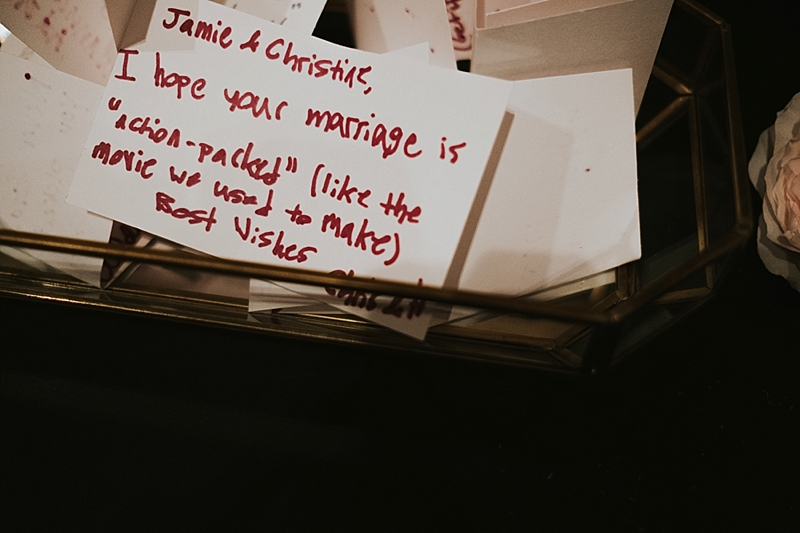 Jamie & Christine,
I hope your marriage is
"action-packed" (like the
movie we used to make)
Best Wishes